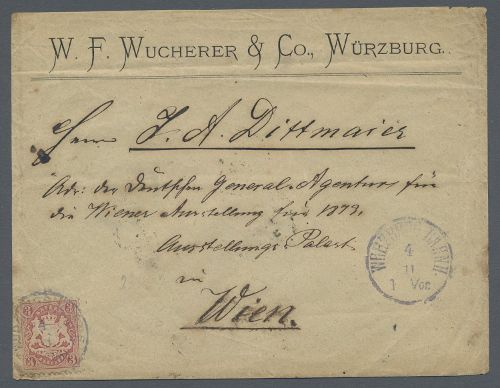 W. F. WUCHERER & CO., WÜRZBURG.
Herrn J. A. Dittmaier
Adr. der Deutschen General-Agentur für
die Wiener Ausstellung 1873,
Ausstellungs-Palast
in
Wien.
4
11
Vor.
3
3